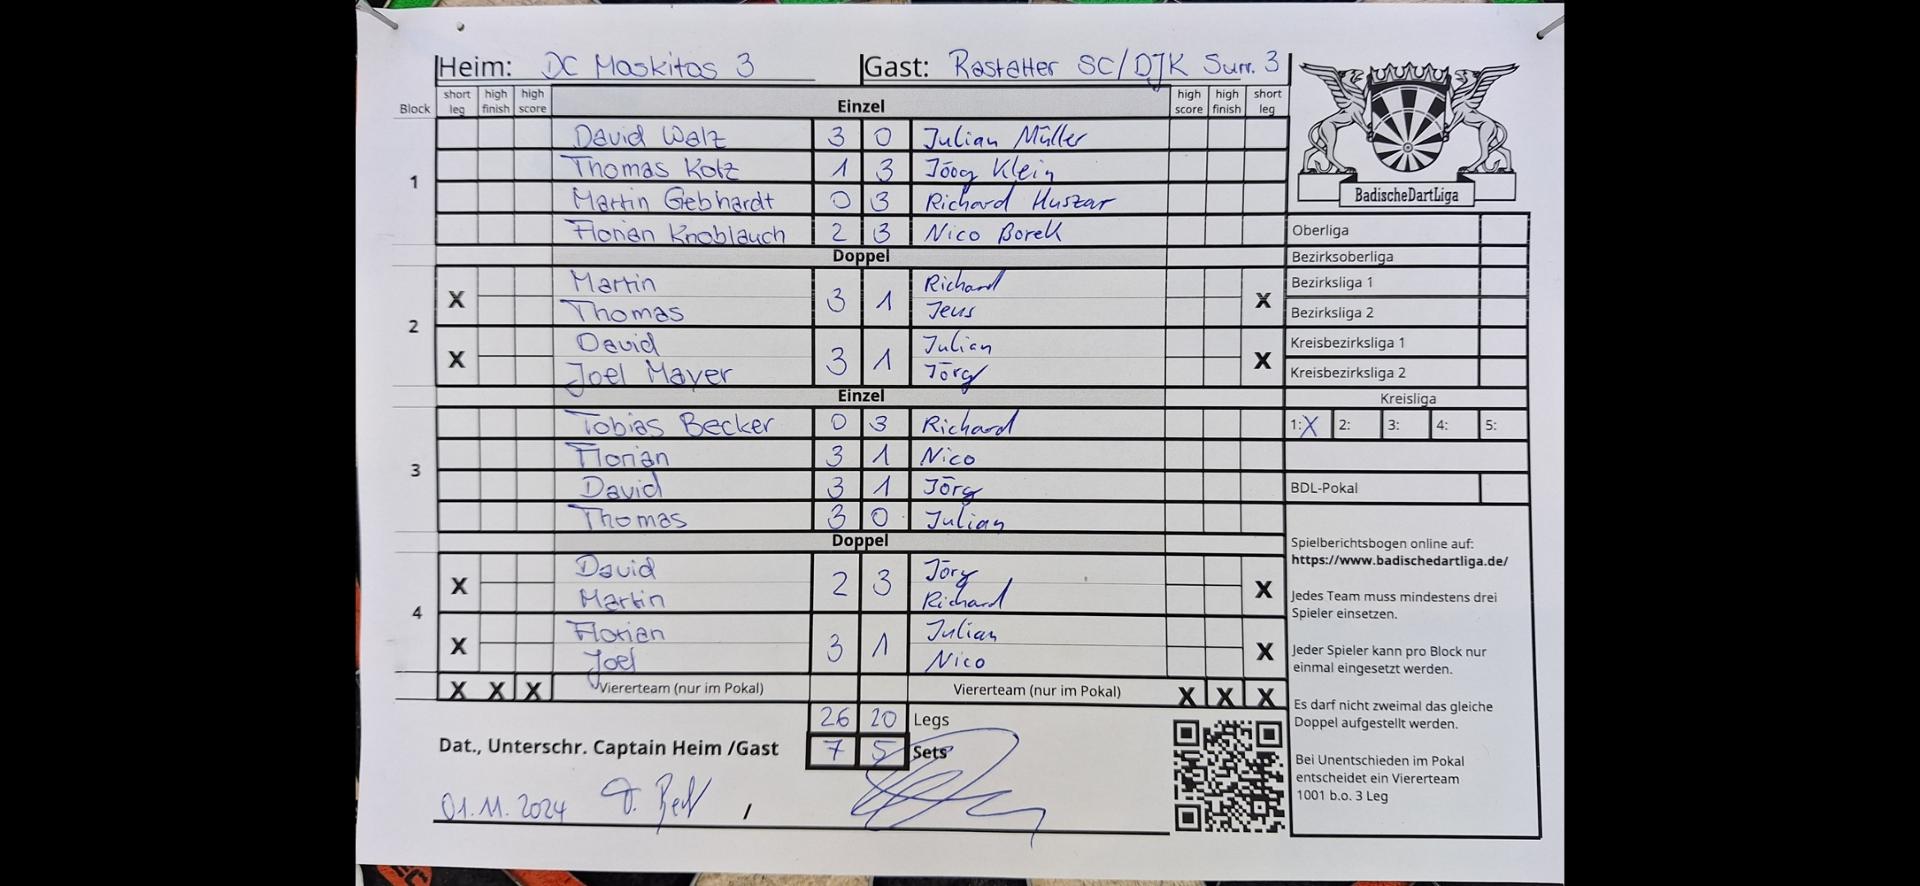 Heim: DC Moskitos 3 Gast: Rastatter SC/DJK Surr. 3
Block short leg high finish high score Einzel high score high finish short leg
1
David Walz 3 0 Julian Müller
Thomas Kotz 1 3 Jöog Klein
Martin Gebhardt 0 3 Richard Huszar
Florian Knoblauch 2 3 Nico Borek
Doppel
2
X Martin 3 1 Richard X
Thomas Jens
X David 3 1 Julian X
Joel Mayer Jörg
Einzel
3
Tobias Becker 0 3 Richard
Florian 3 1 Nico
David 3 1 Jörg
Thomas 3 0 Julian
Doppel
4
X David 2 3 Jörg X
Martin Richard
X Florian 3 1 Julian X
Joel Nico
X X X Viererteam (nur im Pokal) Viererteam (nur im Pokal) X X X
26 20 Legs
Dat., Unterschr. Captain Heim /Gast 7 5 Sets
01.11.2024 /
BadischeDartLiga
Oberliga
Bezirksoberliga
Bezirksliga 1
Bezirksliga 2
Kreisbezirksliga 1
Kreisbezirksliga 2
Kreisliga
1: X 2: 3: 4: 5:
BDL-Pokal
Spielberichtsbogen online auf:
https://www.badischedartliga.de/
Jedes Team muss mindestens drei
Spieler einsetzen.
Jeder Spieler kann pro Block nur
einmal eingesetzt werden.
Es darf nicht zweimal das gleiche
Doppel aufgestellt werden.
Bei Unentschieden im Pokal
entscheidet ein Viererteam
1001 b.o. 3 Leg